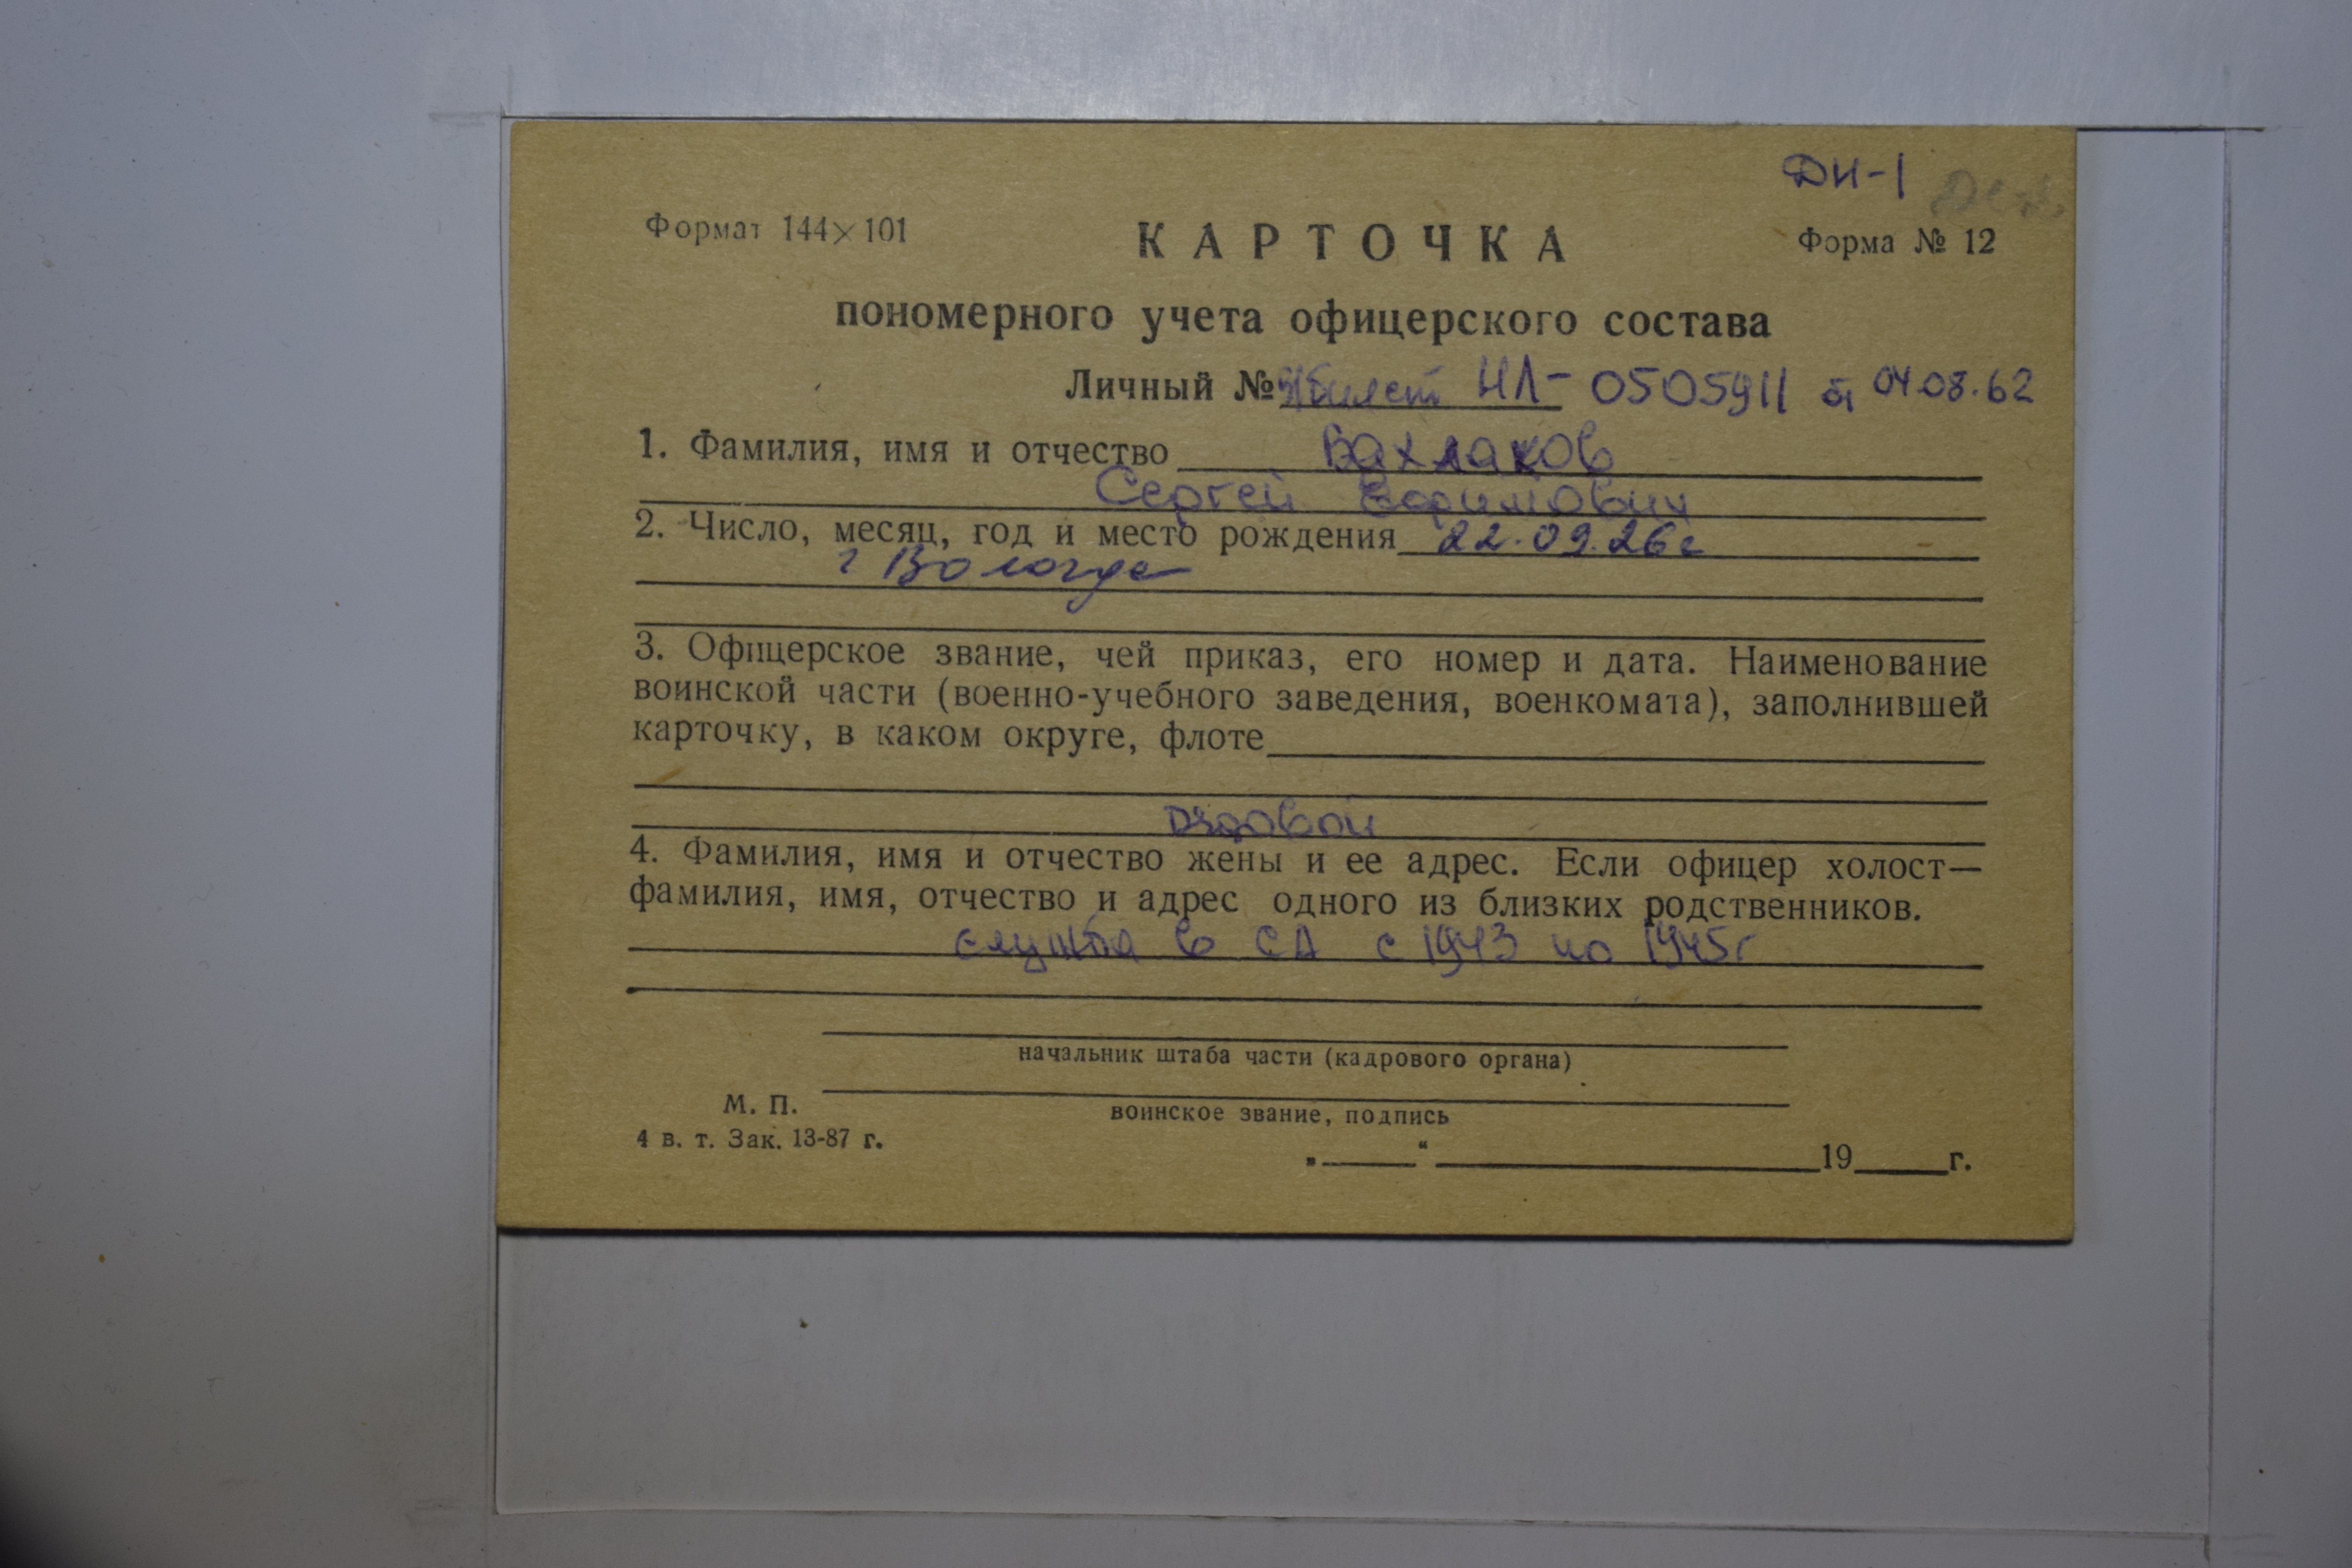 ДИ-1
Формат 144×101
КАРТОЧКА
Форма № 12
пономерного учета офицерского состава
Личный № в/билет НЛ- 0505911 от 04.08.62
1. Фамилия, имя и отчество Вахлаков
Сергей Ефимович
2. Число, месяц, год и место рождения 22.09.26 г
г Вологда
3. Офицерское звание, чей приказ, его номер и дата. Наименование
воинской части (военно-учебного заведения, военкомата), заполнившей
карточку, в каком округе, флоте
рядовой
4. Фамилия, имя и отчество жены и ее адрес. Если офицер холост—
фамилия, имя, отчество и адрес одного из близких родственников.
служба в СА с 1943 по 1945 г
начальник штаба части (кадрового органа)
М. П.
воинское звание, подпись
4 в. т. Зак. 13-87 г.
„ “ 19 г.